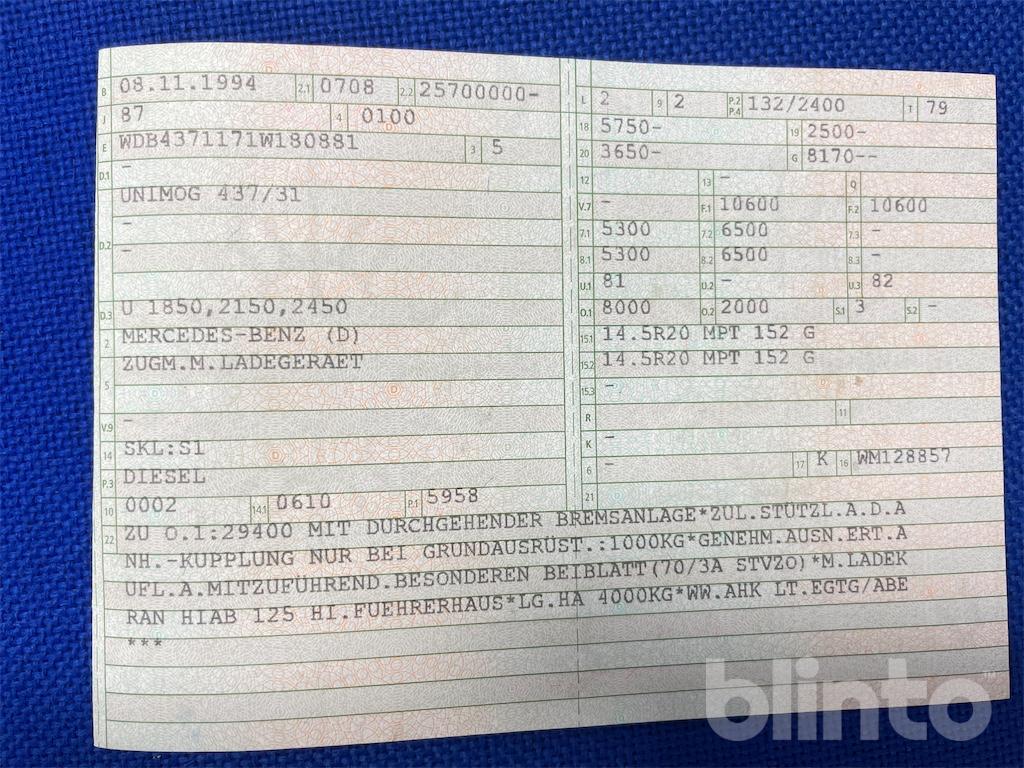 B 08.11.1994 2.1 0708 2.2 25700000-
J 87 4 0100
E WDB4371171W180881 3 5
D.1 -
UNIMOG 437/31
D.2 -
-
D.3 U 1850,2150,2450
2 MERCEDES-BENZ (D)
5 ZUGM.M.LADEGERAET
V.9 -
14 SKL:S1
P.3 DIESEL
10 0002 14.1 0610 P.1 5958
L 2 9 2 P.2 P.4 132/2400 T 79
18 5750- 19 2500-
20 3650- G 8170--
12 13 - Q
V.7 - F.1 10600 F.2 10600
7.1 5300 7.2 6500 7.3 -
8.1 5300 8.2 6500 8.3 -
U.1 81 U.2 - U.3 82
O.1 8000 O.2 2000 S.1 3 S.2 -
15.1 14.5R20 MPT 152 G
15.2 14.5R20 MPT 152 G
15.3 -
R 11
K -
6 - 17 K 16 WM128857
21
22 ZU O.1:29400 MIT DURCHGEHENDER BREMSANLAGE*ZUL.STÜTZL.A.D.A
NH.-KUPPLUNG NUR BEI GRUNDAUSRÜST.:1000KG*GENEHM.AUSN.ERT.A
UFL.A.MITZUFÜHREND.BESONDEREN BEIBLATT(70/3A STVZO)*M.LADEK
RAN HIAB 125 HI.FUEHRERHAUS*LG.HA 4000KG*WW.AHK LT.EGTG/ABE
***
blinto